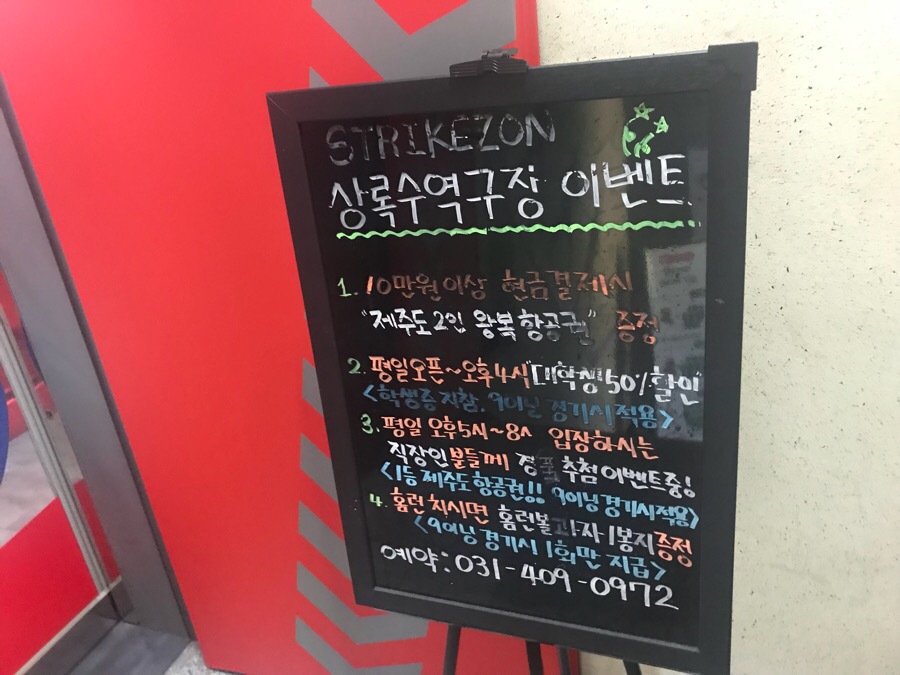 STRIKEZON
상록수역구장 이벤트
1. 10만원이상 현금결제시
"제주도 2인 왕복 항공권" 증정
2. 평일오픈~오후4시 "대학생50%할인"
<학생증 지참. 9이닝 경기시 적용>
3. 평일 오후5시~8시 입장하시는
직장인분들께 경품 추첨 이벤트중!
<1등 제주도항공권!! 9이닝경기시적용>
4. 홈런 치시면 홈런볼과자 1봉지증정
<9이닝경기시 1회만 지급>
예약:031-409-0972